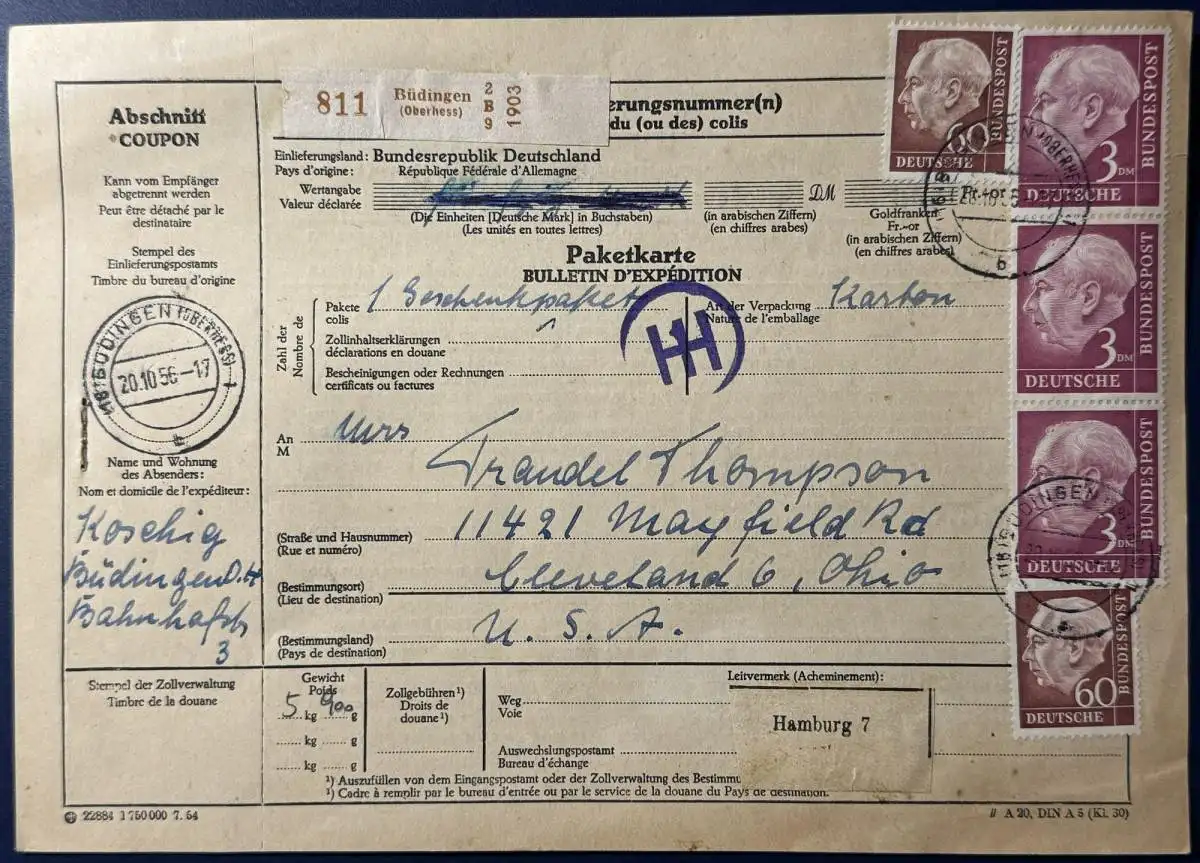 Abschnitt
COUPON
Kann vom Empfänger
abgetrennt werden
Peut être détaché par le
destinataire
Stempel des
Einlieferungspostamts
Timbre du bureau d'origine
(16) BÜDINGEN (OBERHESS) 1
20.10.56-17
Name und Wohnung
des Absenders:
Nom et domicile de l'expéditeur:
Koschig
Büdingen
3
Stempel der Zollverwaltung
Timbre de la douane
811
Büdingen
(Oberhess)
2
B
9
1903
erungsnummer(n)
du (ou des) colis
Einlieferungsland: Bundesrepublik Deutschland
Pays d'origine: République Fédérale d'Allemagne
Wertangabe
Valeur déclarée
DM
Fr.-or
(Die Einheiten [Deutsche Mark] in Buchstaben)
(Les unités en toutes lettres)
(in arabischen Ziffern)
(en chiffres arabes)
Goldfranken
Fr.-or
(in arabischen Ziffern)
(en chiffres arabes)
Paketkarte
BULLETIN D'EXPÉDITION
Zahl der
Nombre de
Pakete 1 Geschenkpaket
colis
Art der Verpackung Karton
Nature de l'emballage
Zollinhaltserklärungen
déclarations en douane
Bescheinigungen oder Rechnungen
certificats ou factures
HH
An Mrs
M
Traudel Thompson
(Straße und Hausnummer) 11421 Mayfield Rd
(Rue et numéro)
(Bestimmungsort) Cleveland 6, Ohio
(Lieu de destination)
(Bestimmungsland) U. S. A.
(Pays de destination)
Gewicht
Poids
5 kg 900 g
kg g
kg g
Zollgebühren¹)
Droits de
douane¹)
Leitvermerk (Acheminement):
Weg
Voie
Hamburg 7
Auswechslungspostamt
Bureau d'échange
¹) Auszufüllen von dem Eingangspostamt oder der Zollverwaltung des Bestimmu
¹) Cadre à remplir par le bureau d'entrée ou par le service de la douane du Pays de destination.
22884 1750000 7.54
A 20, DIN A 5 (Kl. 30)
60
DEUTSCHE
BUNDESPOST
3 DM
DEUTSCHE
BUNDESPOST
3 DM
DEUTSCHE
BUNDESPOST
3 DM
DEUTSCHE
BUNDESPOST
60
DEUTSCHE
BUNDESPOST
b
(16) BÜDINGEN